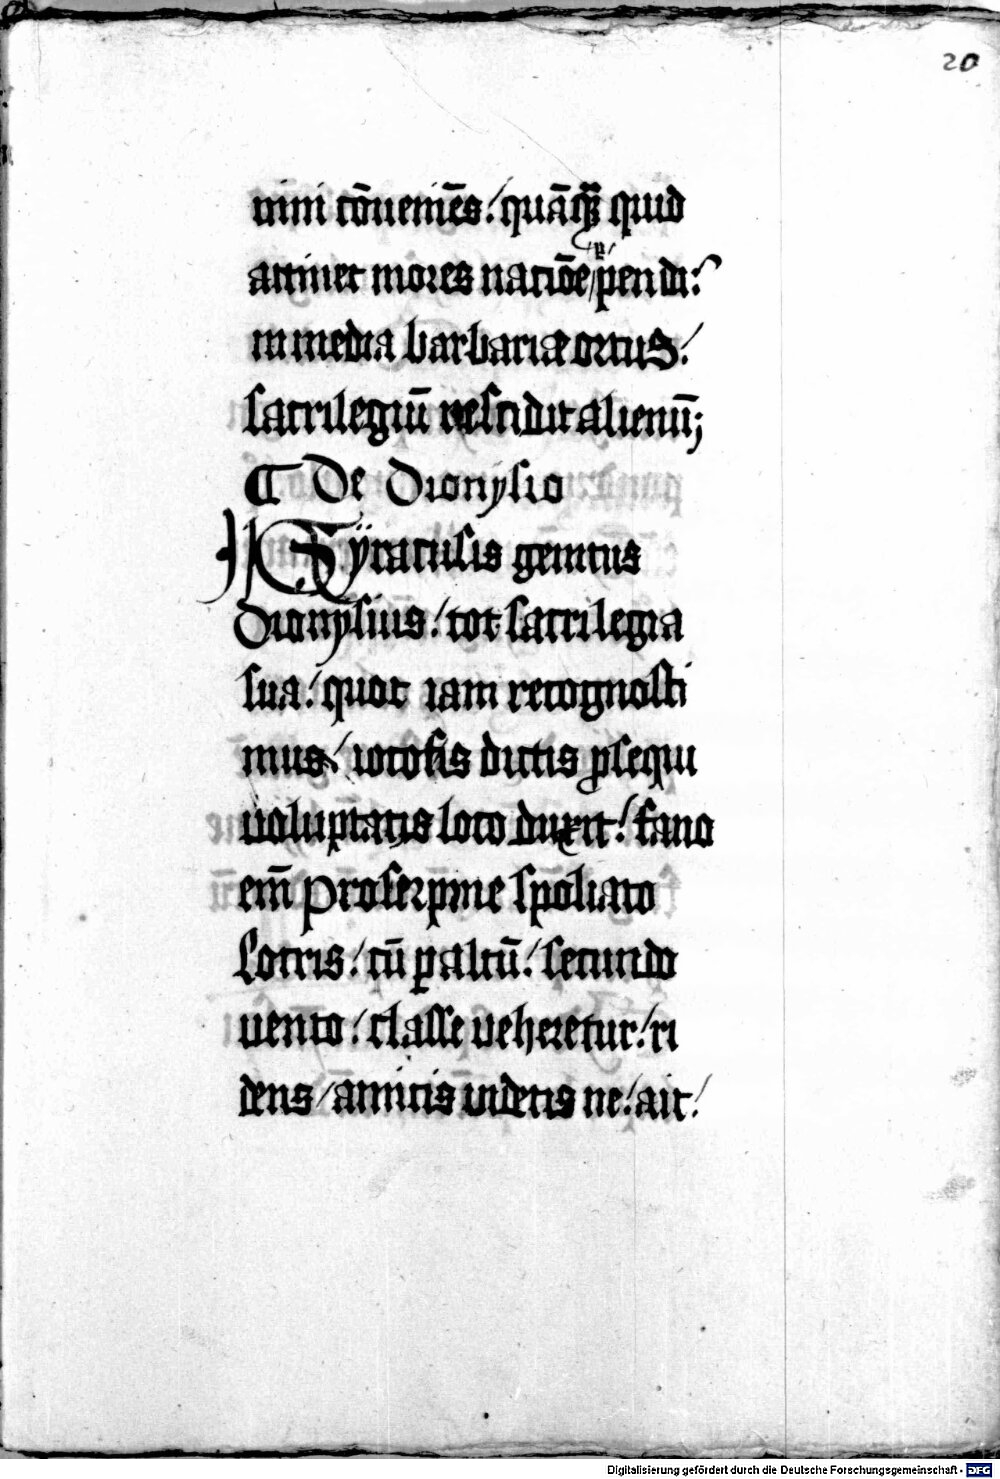 20
nini cōueniēs / quāqꝫ quid
attinet mores natiōe pendi:
in media barbariæ ortus /
sacrilegiū rescidit alienū;
¶ De Dionysio
Syracusis genitus
Dionysius / tot sacrilegia
sua / quot iam recognosci
mus / iocosis dictis ꝑsequi
uoluptatis loco duxit / fano
em̄ Proserpine spoliato
Locris / cū ꝑ altū / secundo
uento / classe ueheretur / ri
dens / amicis uidetis ne / ait /
Digitalisierung gefördert durch die Deutsche Forschungsgemeinschaft - DFG